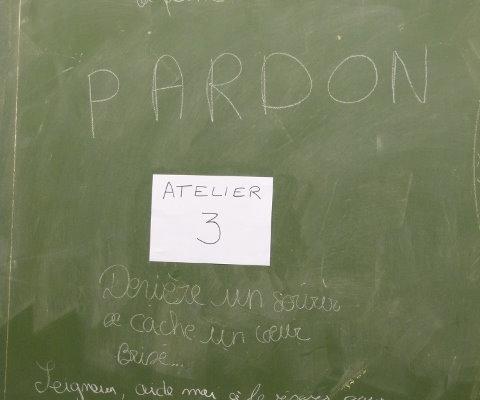 PARDON
ATELIER
3
Derière un sourire
se cache un cœur
brisé...
Seigneur, aide moi à le